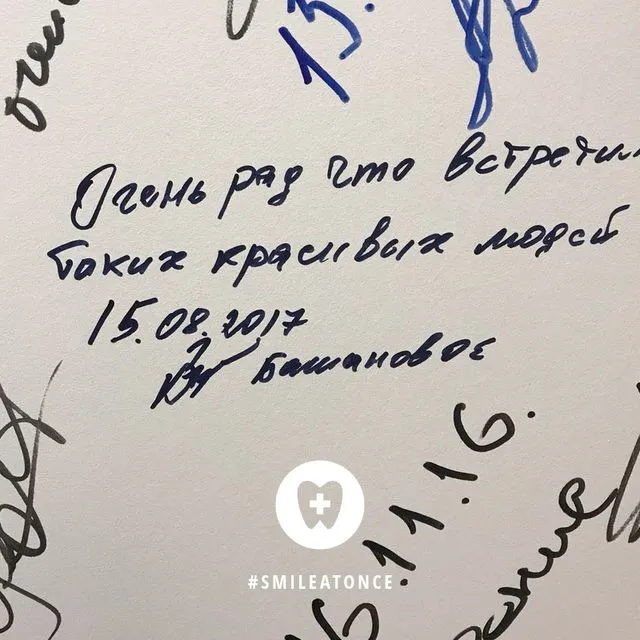 очень
13.
Очень рад что встретил
таких красивых людей
15.08.2017
Башановое
16.11.16.
#SMILEATONCE